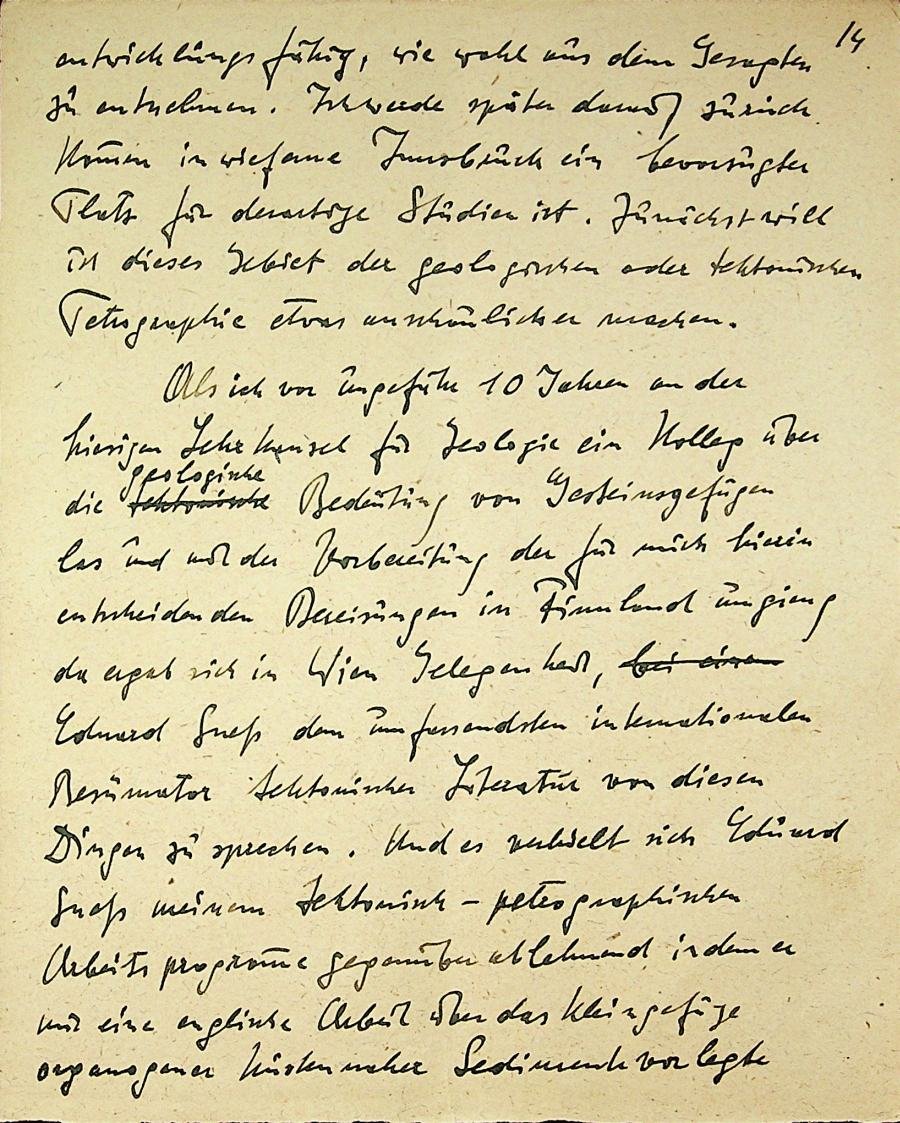 14
entwicklungsfähig, wie wohl aus dem Gesagten
zu entnehmen. Ich werde später darauf zurück
kom̄en in wieferne Innsbruck ein bevorzugter
Platz für derartige Studien ist. Zunächst will
ich dieses Gebiet der geologischen oder tektonischen
Petrographie etwas anschaulicher machen.
Als ich vor ungefähr 10 Jahren an der
hiesigen Lehrkanzel für Geologie ein Kolleg über
geologische
die tektonische Bedeutung von Gesteinsgefügen
las und mit der Vorbereitung der für mich hierin
entscheidenden Bereisungen in Finnland umgieng
da ergab sich in Wien Gelegenheit, bei einem
Eduard Sueß dem umfassendsten internationalen
Resumator tektonischer Literatur von diesen
Dingen zu sprechen. Und es verhielt sich Eduard
Sueß meinem tektonisch - petrographischen
Arbeitsprogram̄e gegenüber ablehnend indem er
mir eine englische Arbeit über das Kleingefüge
organogener küstennaher Sedimente vorlegte